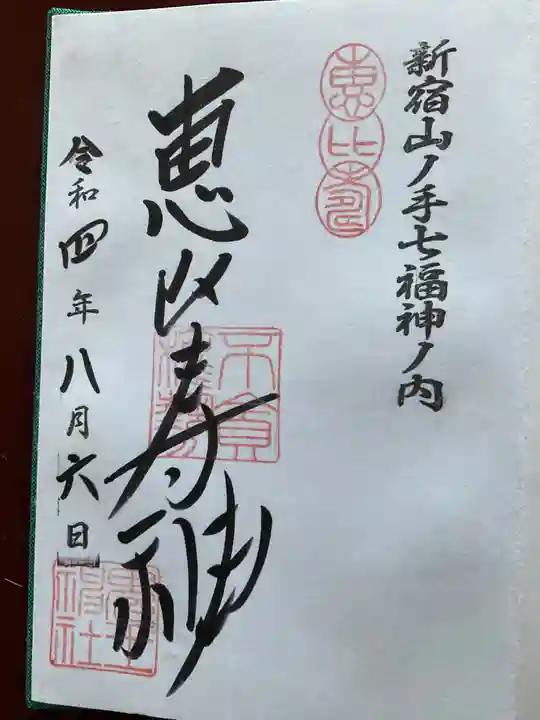 新宿山ノ手七福神ノ内
恵比寿
恵比寿神
令和四年八月六日